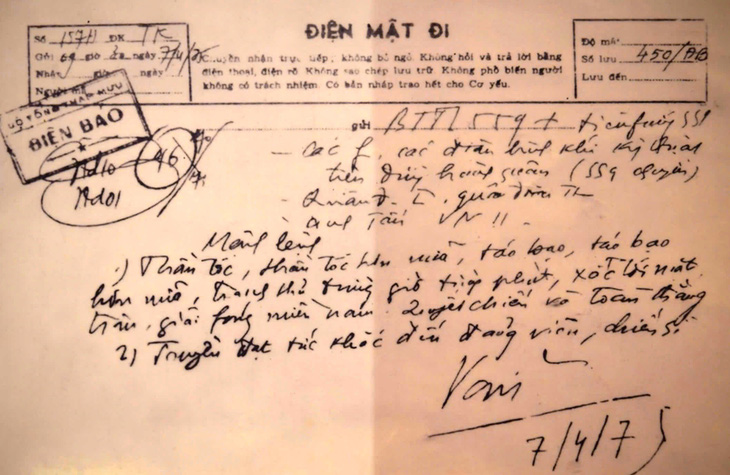 ĐIỆN MẬT ĐI
Số 157H ĐK TK
Gởi 09 giờ ngày 7/4/75
Nhận giờ ngày
Người mã
Chuyền nhận trực tiếp, không bỏ ngỏ. Không hỏi và trả lời bằng
điện thoại, điện rõ. Không sao chép lưu trữ. Không phổ biến người
không có trách nhiệm. Có bản nháp trao hết cho Cơ yếu.
Độ mật
Số lưu 450/ĐB
Lưu đến
BỘ TỔNG THAM MƯU
ĐIỆN BÁO
gửi BTTL 559 + tiền phương 559
46
- Các f, các đơn vị binh khí kỹ thuật
trên đường hành quân (559 chuyển)
- Quân đ. I, quân đoàn
Mệnh lệnh
1) Thần tốc, thần tốc hơn nữa, táo bạo, táo bạo
hơn nữa, tranh thủ từng giờ từng phút, xốc tới mặt
trận, giải fóng miền nam. Quyết chiến và toàn thắng
2) Truyền đạt tức khắc đến đảng viên, chiến sĩ
Văn
7/4/75